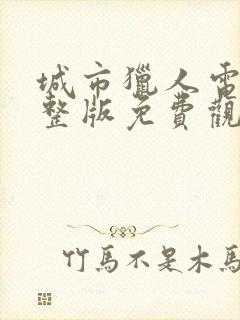 城市獵人電
整版免費觀
竹馬不是木馬